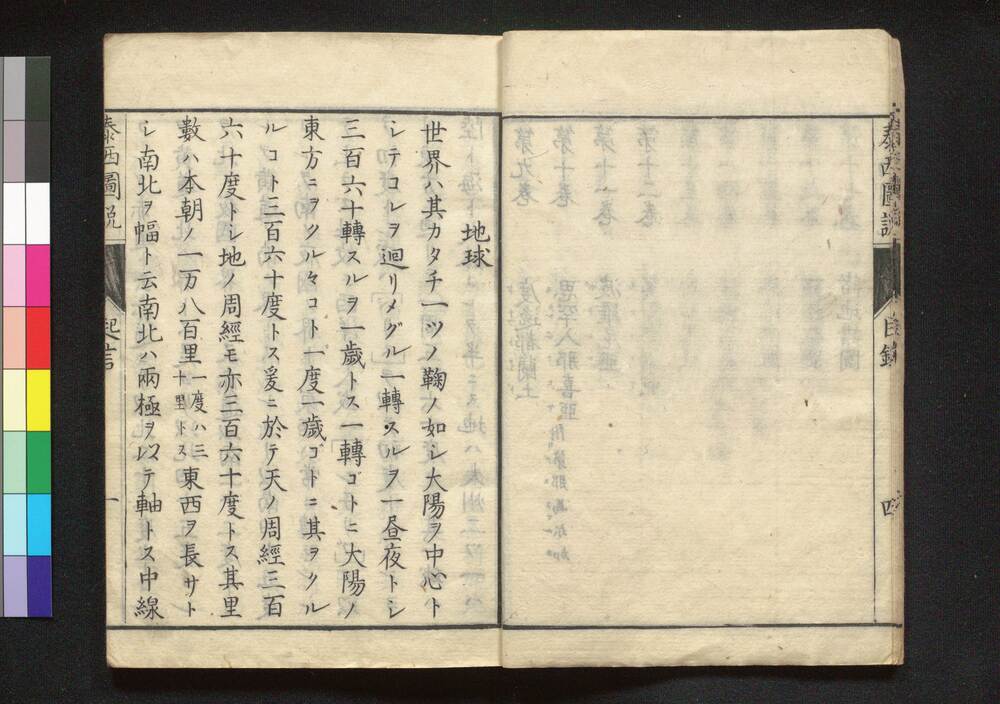 泰西圖説
目録
四
地球
世界ハ其カタチ一ツノ鞠ノ如シ大陽ヲ中心ト
シテコレヲ迴リメグル一轉スルヲ一昼夜トシ
三百六十轉スルヲ一歳トス一轉ゴトニ大陽ノ
東方ニヲクル々コト一度一歳ゴトニ其ヲクル
ルコト三百六十度トス爰ニ於テ天ノ周經三百
六十度トシ地ノ周經モ亦三百六十度トス其里
數ハ本朝ノ一万八百里一度ハ三十里トス東西ヲ長サト
シ南北ヲ幅ト云南北ハ兩極ヲ以テ軸トス中線
泰西圖説
起言
一